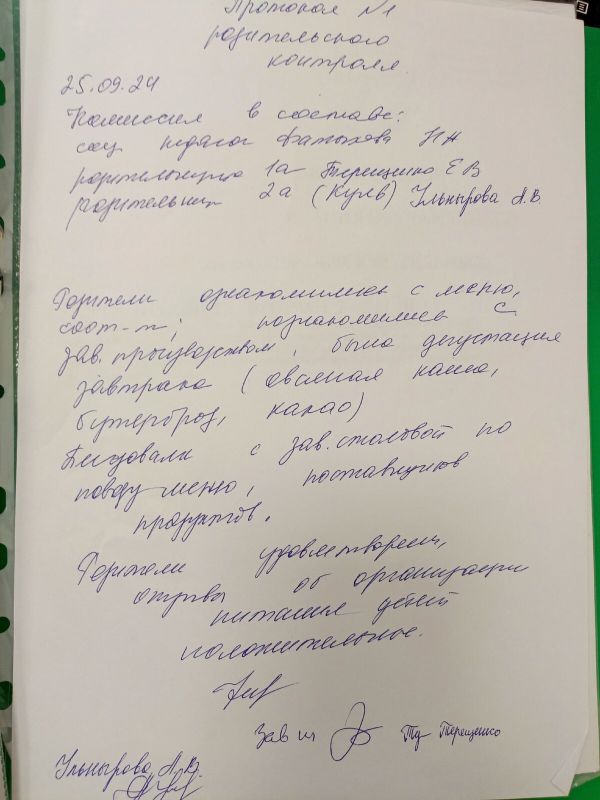 Протокол №1
родительского
контроля
25.09.24
Комиссия в составе:
соц педагог Фатыхова Н Н
родительницы 1а Терещенко Е В
родительниц 2а (Кулв) Ульнырова А.В.
Родители ознакомились с меню,
соот-т; познакомились с
зав. производством, была дегустация
завтрака (овсяная каша,
бутерброд, какао)
Беседовали с зав. столовой по
поводу меню, поставщиков
продуктов.
Родители удовлетворены,
отзывы об организации
питания детей
положительные.
Зав
Терещенко
Ульнырова А.В.